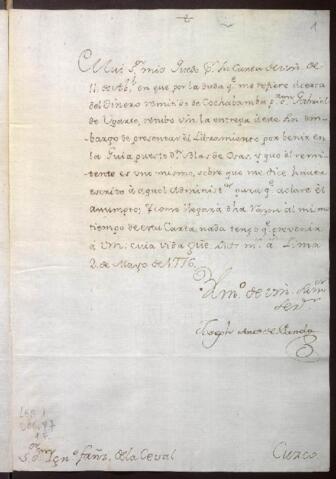 1
Mui Sr. mio Quedo pr. su Carta de vm. de
11. de Abl. en que por la duda qe. me refiere acerca
del Dinero remitido de Cochabamba pr. Dn. Gabriel
de Ugarte, retubo vm la entrega de este sin em-
bargo de presentar el Libramiento por benir en
la Guia puesto Dn. Blas de Osas, y que el remi-
tente es uno mismo, sobre que me dice haver
escrito à aquel Administor. para qe. aclare el
asumpto; Y como llegará dha razon al mismo
tiempo de esta Carta, nada tengo qe. prevenir
à vm. cuia vida gue. Dios ms. as. Lima
2. de Mayo de 1776.
de vm. su
serr.
Joseph Anto. de Pando
Leg 1
17
Sor. Dn. Igno. Fañz. de la Ceval
Cuzco.